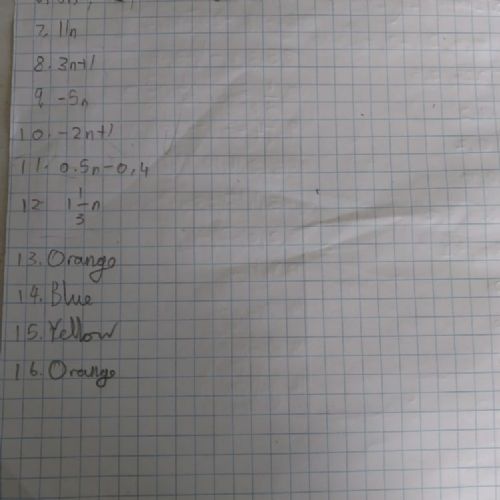 7. 11n
8. 3n+1
9. -5n
10. -2n+1
11. 0.5n-0.4
12. 1 1/3 n
13. Orange
14. Blue
15. Yellow
16. Orange